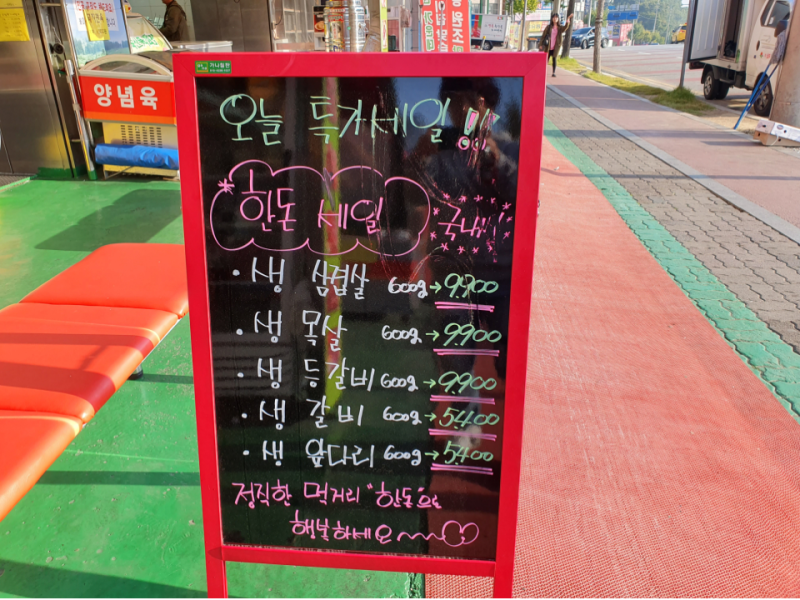 양념육
오늘 특가세일!!
한돈 세일
·생 삼겹살 600g→9,900
·생 목살 600g→9,900
·생 등갈비 600g→9,900
·생 갈비 600g→5,400
·생 앞다리 600g→5,400
정직한 먹거리 "한돈으로
행복하세요~